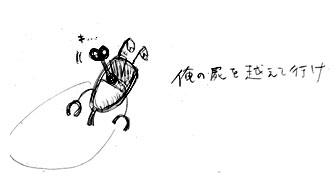 キ…
俺の屍を越えて行け